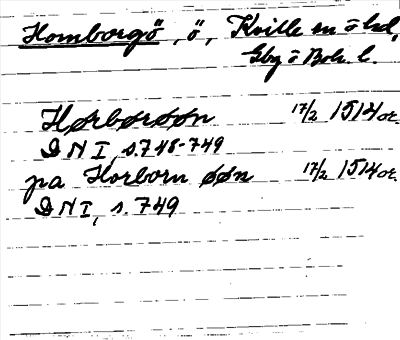 Homborgö, ö, Kville sn ö hd,
Gbg o Boh. l.
Hørbørøøn 17/2 1514 or.
DN I, s. 748-749
pa Horborn øøn 17/2 1514 or.
DN I, s. 749